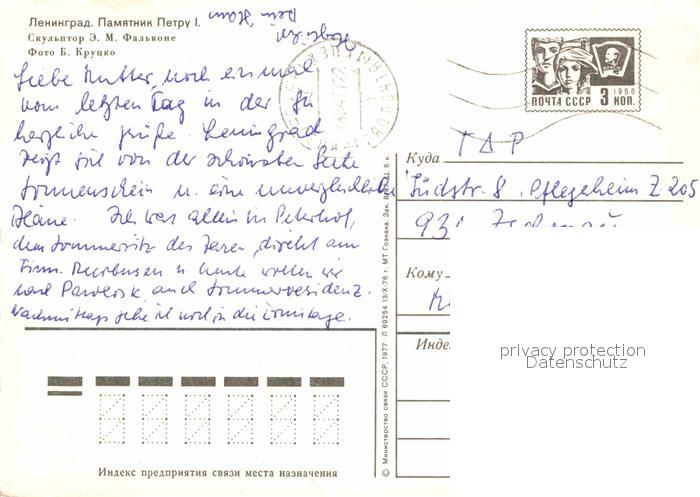 Ленинград. Памятник Петру I.
Скульптор Э. М. Фальконе
Фото Б. Круцко
Dein
Liebe Mutter, noch einmal
vom letzten Tag in der SU
herzliche Grüße. Leningrad
zeigt sich von der schönsten Seite
Sonnenschein u. eine unvergleichliche
Bläue. Ich war allein in Peterhof,
dem Sommersitz des Zaren, direkt am
Finn. Meerbusen u. heute wollen wir
nach Pawlowsk auch Sommerresidenz.
Nachmittags gehe ich noch in die Ermitage.
ПОЧТА СССР 3 КОП.
1966
Куда ГДР
Südstr. 8, Pflegeheim Z 205
Кому
Инде
privacy protection
Datenschutz
Индекс предприятия связи места назначения
© Министерство связи СССР, 1977 Л 69254 13/X-76 г. МТ Гознака. Зак.